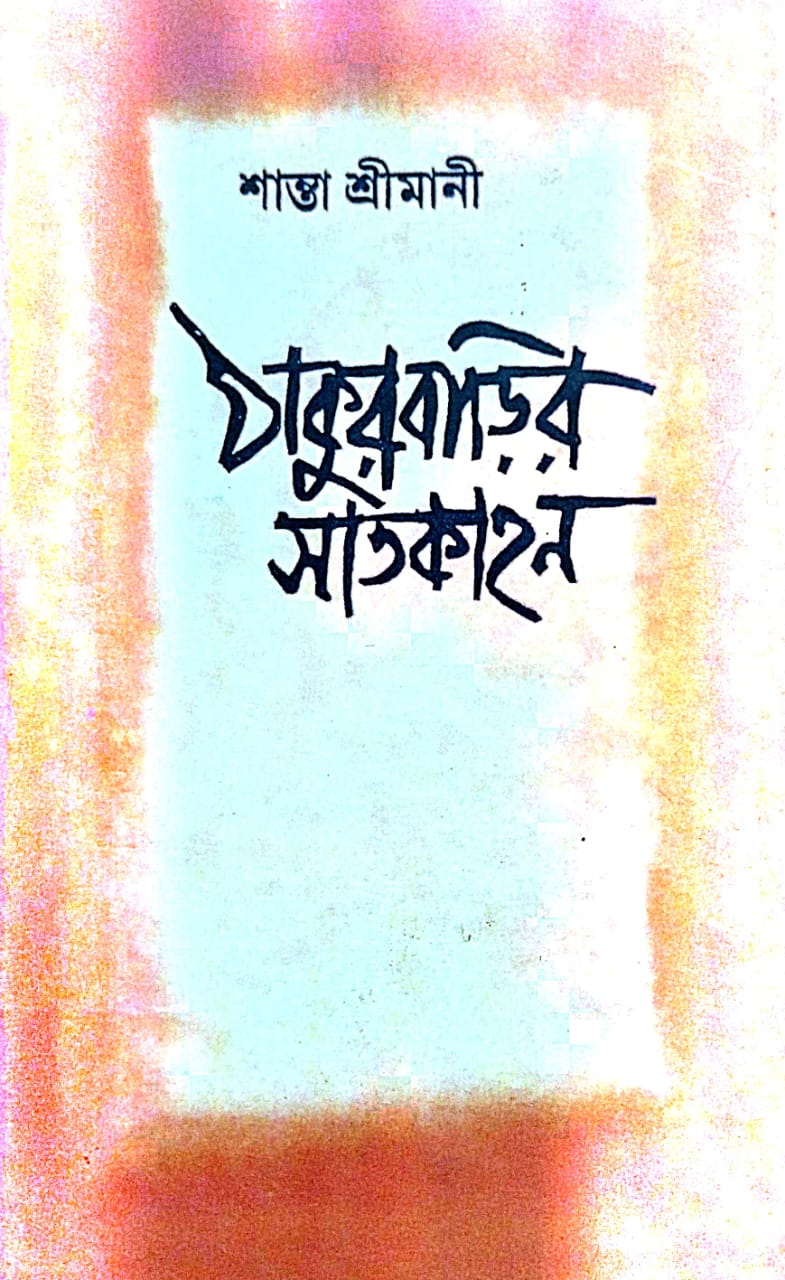 শান্তা শ্রীমানী
ঠাকুরবাড়ির
সাতকাহন